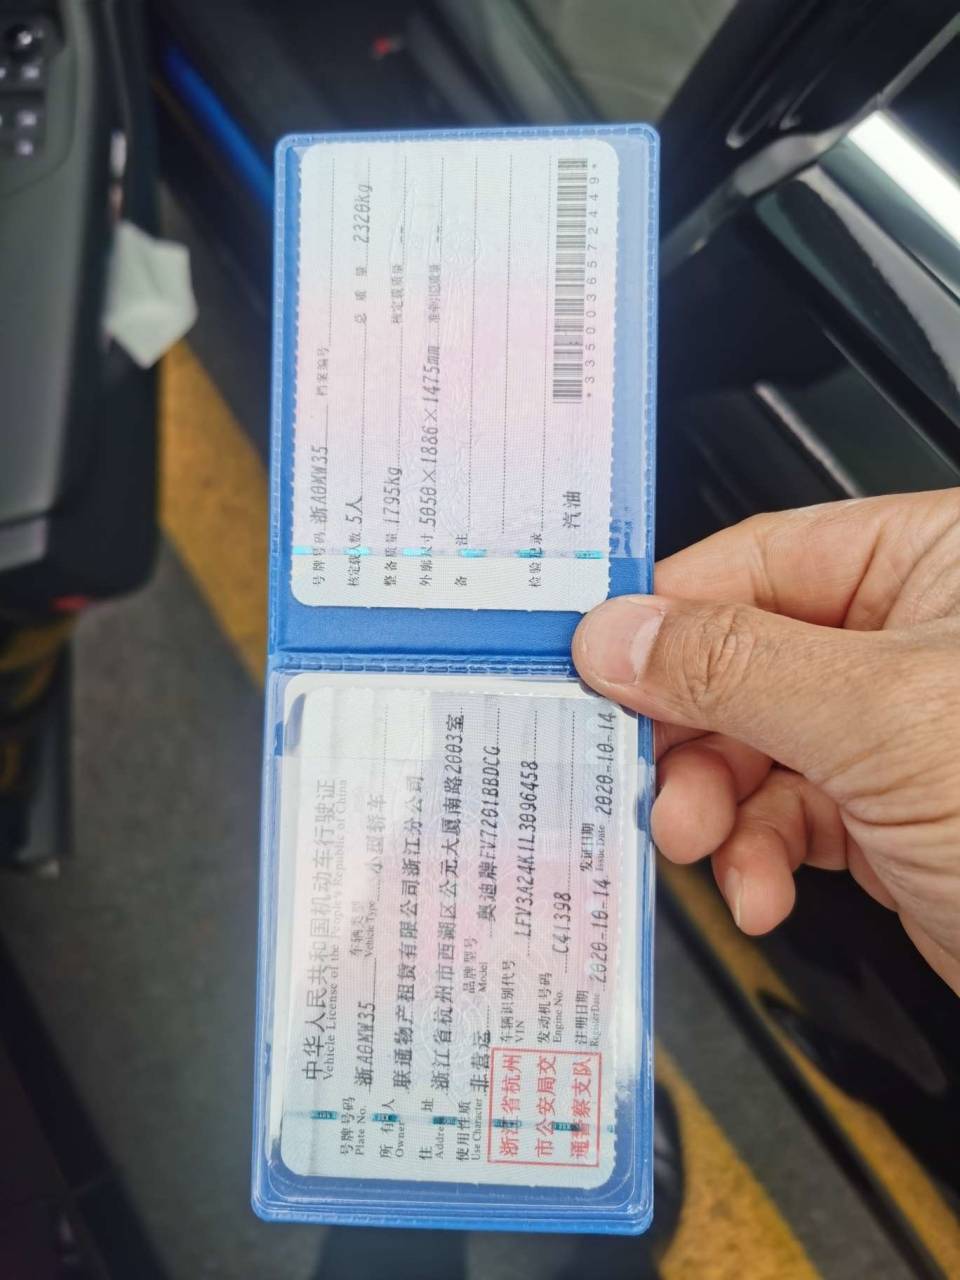 中华人民共和国机动车行驶证
Vehicle License of the People's Republic of China
号牌号码 浙A0MW35 车辆类型 小型轿车
Plate No. Vehicle Type
所有人 联通物产租赁有限公司浙江分公司
Owner
住址 浙江省杭州市西湖区公元大厦南路2003室
Address
使用性质 非营运 品牌型号 奥迪牌FV7201BBDCG
Use Character Model
浙江省杭州
市公安局交
通警察支队
车辆识别代号 LFV3A24K1L3096458
VIN
发动机号码 C41398
Engine No.
注册日期 2020-10-14 发证日期 2020-10-14
Register Date Issue Date
号牌号码 浙A0MW35 档案编号
核定载人数 5人 总质量 2320kg
整备质量 1795kg 核定载质量 --
外廓尺寸 5050×1886×1475mm 准牵引总质量 --
备注
检验记录
汽油
*3350036572449*